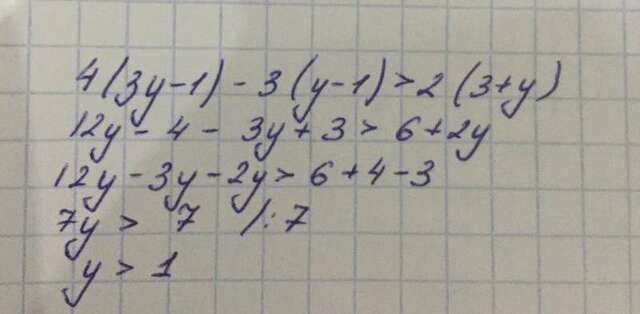 4(3y-1) - 3(y-1) > 2(3+y)
12y - 4 - 3y + 3 > 6 + 2y
12y - 3y - 2y > 6 + 4 - 3
7y > 7 /:7
y > 1